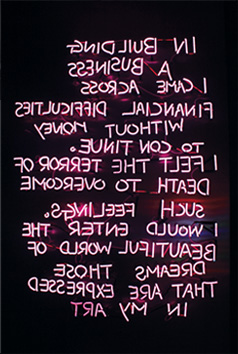 IN BUILDING
A BUSINESS
I CAME ACROSS
FINANCIAL DIFFICULTIES
WITHOUT MONEY
TO CONTINUE.
I FELT THE TERROR OF
DEATH TO OVERCOME
SUCH FEELINGS.
I WOULD ENTER THE
BEAUTIFUL WORLD OF
DREAMS THOSE
THAT ARE EXPRESSED
IN MY ART